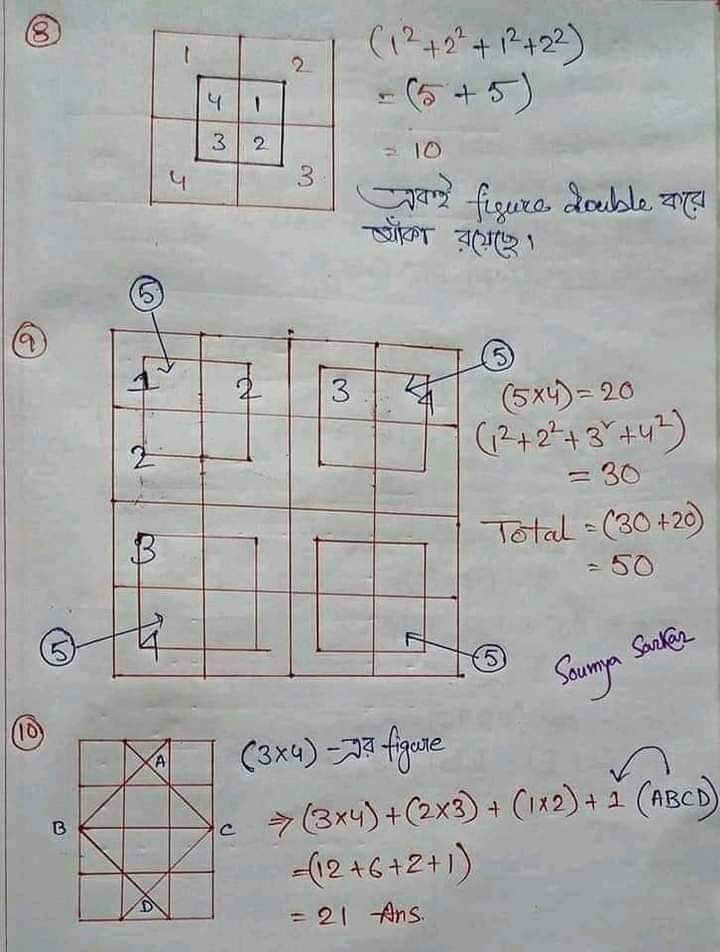 8
1 2
4 1
3 2
4 3
(1²+2²+1²+2²)
= (5 + 5)
= 10
একই figure double করে
আঁকা রয়েছে।
9
5
5
1 2 3 4
2
3
4
5
5
(5×4) = 20
(1²+2²+3²+4²)
= 30
Total = (30+20)
= 50
Soumya Sarkar
10
A
B C
D
(3×4) -এর figure
⇒ (3×4) + (2×3) + (1×2) + 1 (ABCD)
=(12+6+2+1)
= 21 Ans.